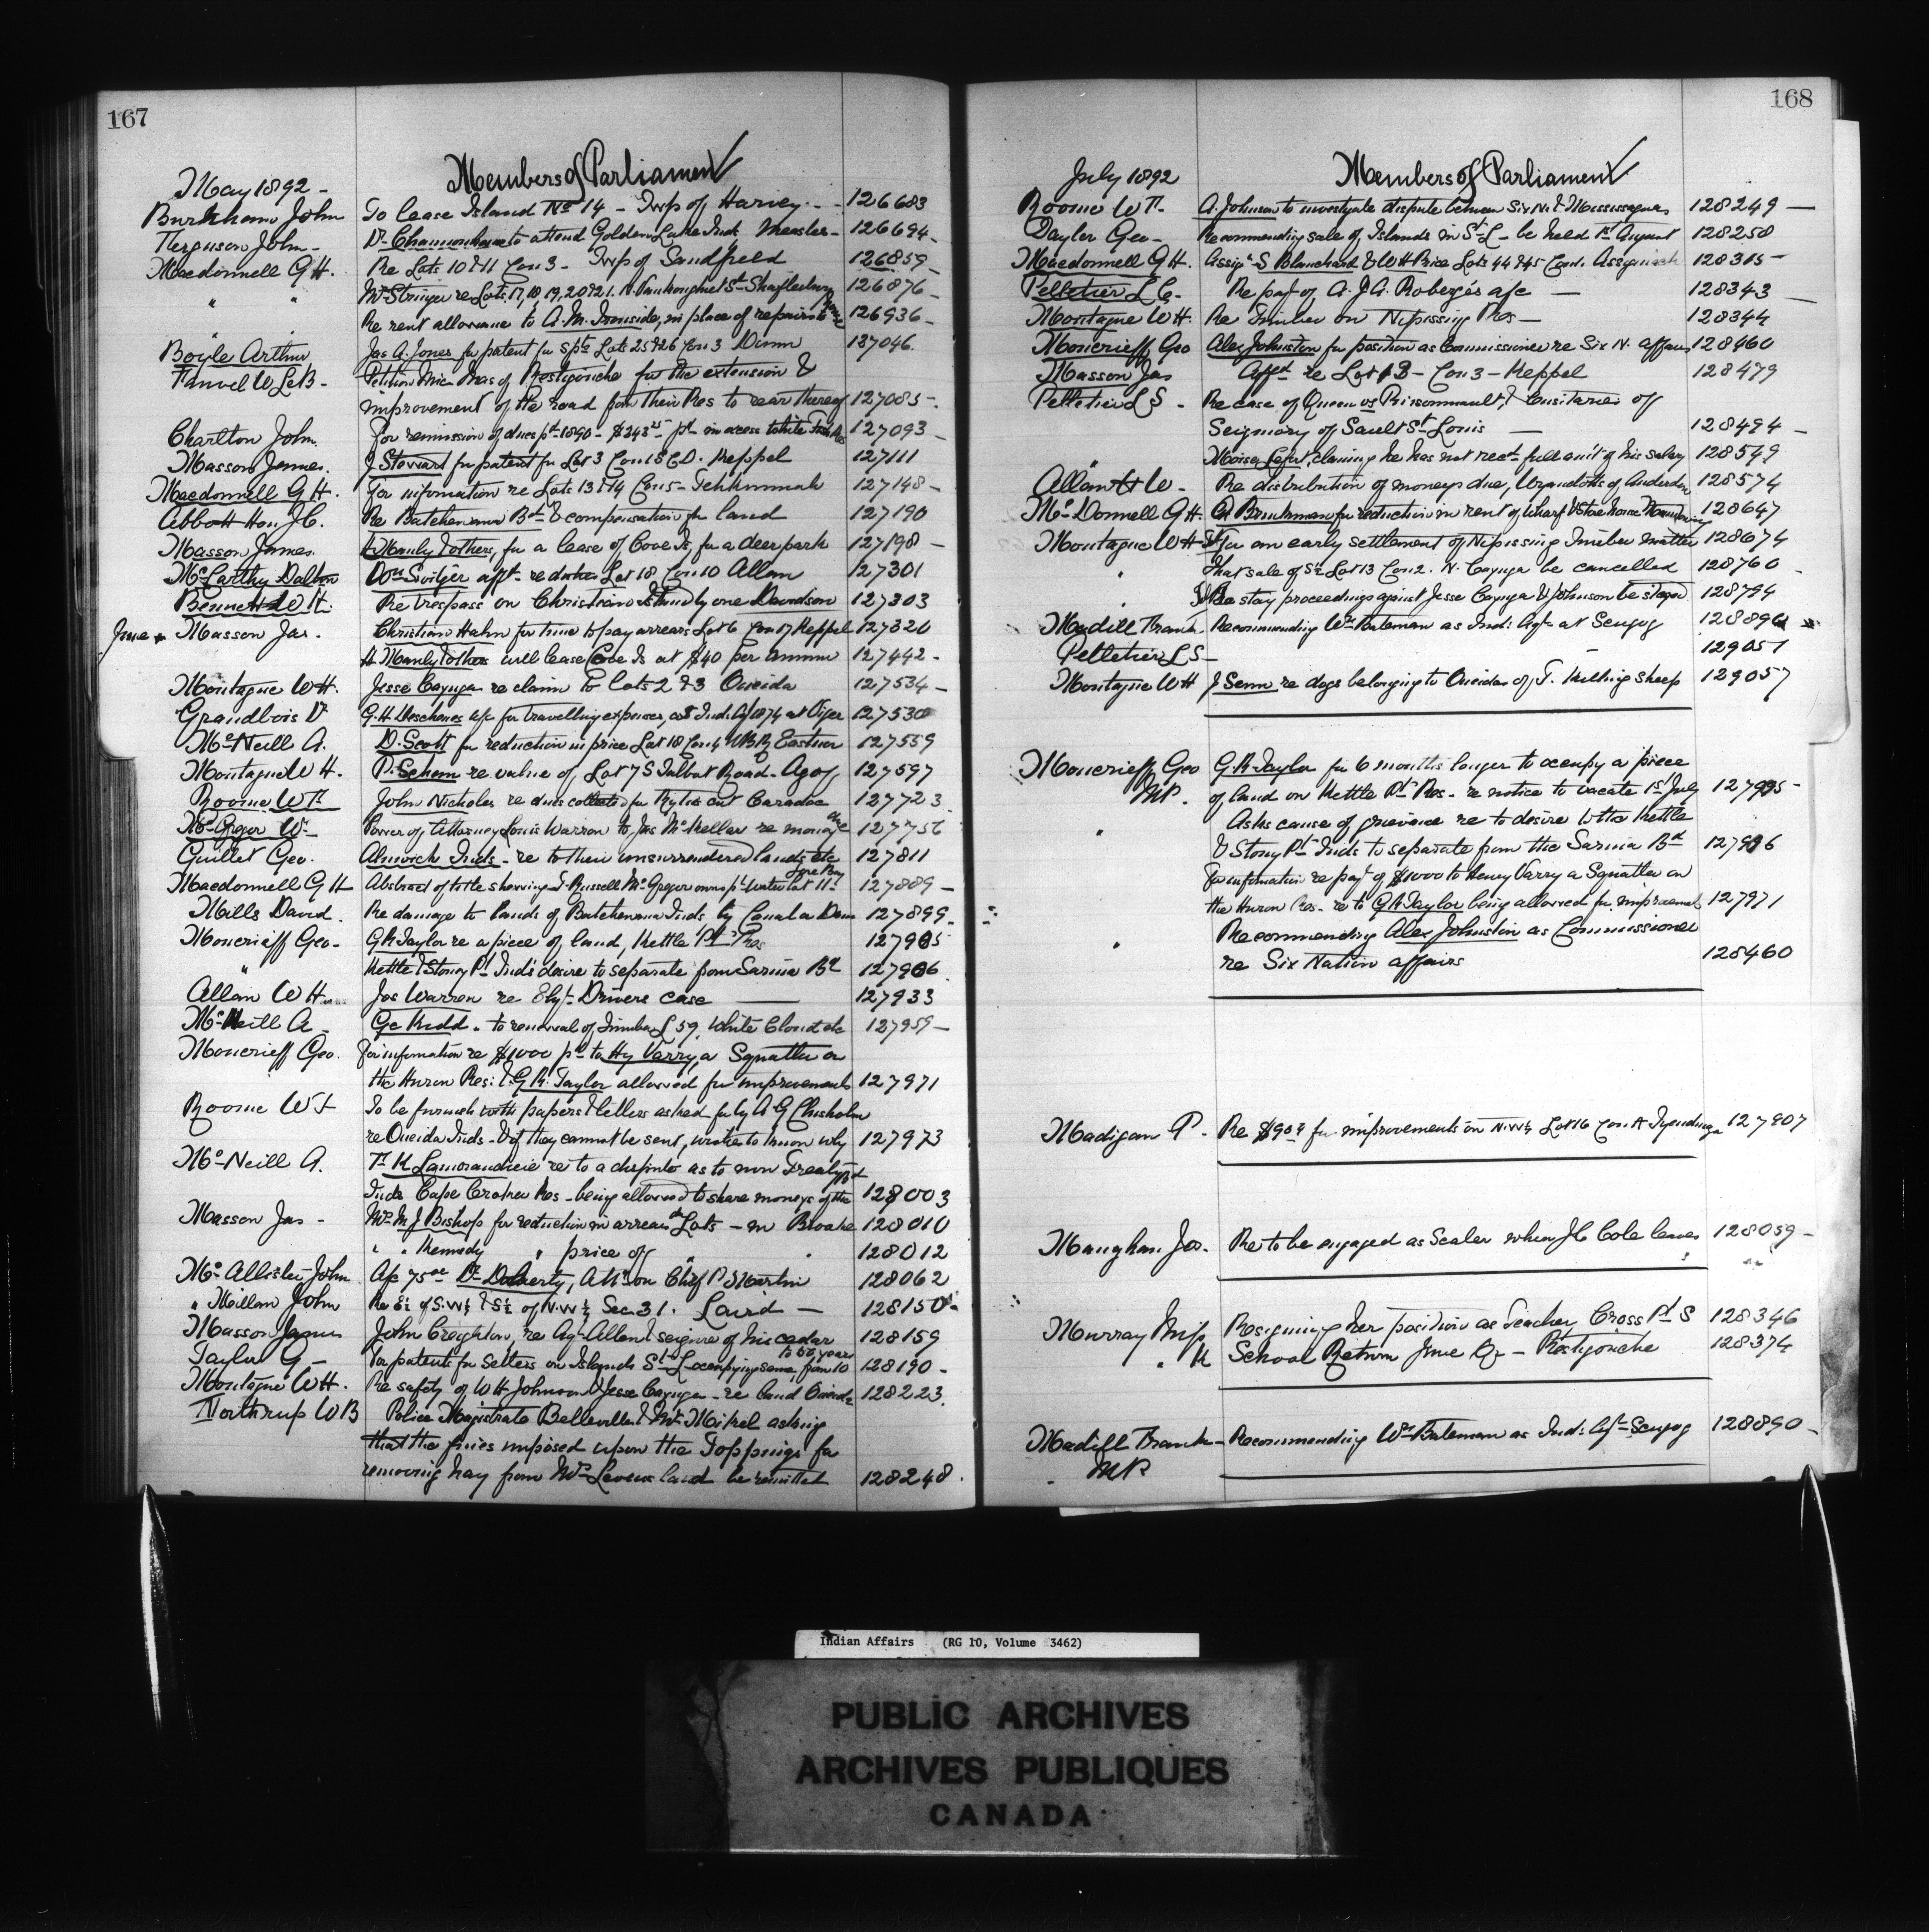 167
Members of Parliament
May 1892 -
Burnham John To lease Island No 14 - Twp of Harvey - 126683
Ferguson John - Dr Channonhouse to attend Golden Lake Inds Measles - 126694 -
Macdonnell G H. Re Lots 10 & 11 Con 3 - Twp of Sandfield 126859 -
" " Mr Stringer re Lots 17, 18, 19, 20 & 21. N. Vankoughnet St Shaftesbury 126876 -
" Re rent allowance to A. M. Ironside, in place of repairs to house 126936 -
Boyle Arthur Jas A. Jones for patent for Lots 25 & 26 Con 3 Dunn 127046.
Fauvel W LeB - Petition Mic Macs of Restigouche for the extension &
improvement of the road from their Res to rear thereof 127085 -
Charlton John. for remission of dues pd 1890 - $243 25 pd in excess 127093 -
Masson James. J Stewart for patent for Lot 3 Con 15 E.D. Keppel 127111
Macdonnell G H. for information re Lots 13 & 14 Con 5 - Tehkummah 127148 -
Abbott Hon J.C. Re Batchewana Bd & compensation for land 127190
Masson James. H Manly & others, for a lease of Cove Is. for a deer park 127198 -
McCarthy Dalton Don Switzer appt re Lot 18 Con 10 Allan 127301
Bennett W H. Re trespass on Christian Island by one Davidson 127303
June Masson Jas. Christian Hahn for time to pay arrears Lot 6 Con 17 Keppel 127320
H Manly & others will lease Cove Is at $40 per annum 127442 -
Montague W H. Jesse Cayuga re claim to Lots 2 & 3 Oneida 127534 -
Grandbois P. G. H Deschenes a/c for travelling expenses, as Ind. Agt 1874 at Viger 127530
McNeill A. D. Scott for reduction in price Lot 18 Con 4 Eastnor 127559
Montague W H. P. Schram re value of Lot 7 S Talbot Road - Cayuga 127597
Roome W F. John Nicholas re dues collected for Rylies cut Caradoc 127723
McGregor Wm Power of Attorney Louis Warron to Jas McKellar re money due 127756
Guillet Geo. Alnwick Inds - re to their unsurrendered lands etc 127811
Macdonnell G H Abstract of title shewing T. Russell McGregor owns pt Water Lot 11. Gore Bay 127889 -
Mills David. Re damage to lands of Batchewana Inds by Canada Dam 127899 -
Moncrieff Geo - G R Taylor re a piece of land, Kettle Pt Res 127905
" Kettle & Stoney Pt Inds desire to separate from Sarnia Bd 127906
Allan W H. Jos Warron re Ely Drivers case 127933
McNeill A - Ge Kidd " to renewal of Timber L 59. White Cloud etc 127959 -
Moncrieff Geo. for information re $1000 pd to Hy Varry, a Squatter on
the Huron Res: & G. R. Taylor allowed for improvements 127971
Roome W F To be furnish with papers & letters asked for by A G Chisholm
re Oneida Inds - & if they cannot be sent, wishes to know why 127973
McNeill A. F. H. Lamorandiere re to a dispute as to non Treaty
Inds Cape Croker Res - being allowed to share moneys of the Bd 128003
Masson Jas - Mrs M J Bishop for reduction in arrears Lots - in Brooke 128010
" " Kennedy " price of " 128012
McAllister John A/c 75 00 Dr Doherty, Attn on Chf P Martin 128062
" Millan John Re E½ of S.W¼ & S½ of N.W¼ Sec. 31. Laird - 128150 -
Masson James John Creighton, re Agt Allen & seizure of his cedar 128159
Taylor G - For patents for Settlers on Islands St L occupying same, from 10 to 50 years 128190 -
Montague W H. Re safety of W H Johnson & Jesse Cayuga - re land Oneida 128223.
Northrup W B Police Magistrate Belleville & Mr Mikel asking
that the fines imposed upon the Toppings for
removing hay from Mrs land be remitted 128248.
168
Members of Parliament
July 1892
Roome W F. A. Johnson to investigate dispute between Six N. & Mississaguas 128249 -
Taylor Geo - Recommending sale of Islands in St L - be held 1st August 128258
Macdonnell G H. Assigt S Blanchard & W H Price Lots 44 & 45 Con. Assiginack 128315 -
Pelletier L C. Re payt of A. J A. Roberge's a/c - 128343 -
Montague W H. Re timber on Nipissing Res - 128344
Moncrieff Geo Alex Johnston for position as Commissioner re Six N. affairs 128460
Masson Jas Affdt re Lot 13 - Con 3 - Keppel 128479
Pelletier L S - Re case of Queen vs Prisonneault, & Censitaires of
Seigniory of Sault St Louis - 128494 -
" Moise Lefort, claiming he has not recd full amt of his salary 128549
Allan W - Re distribution of moneys due, Wyandotts of Anderdon 128574
McDonnell G H. for reduction in rent of wharf & Store house Manitowaning 128647
Montague W H for an early settlement of Nipissing Timber matter 128674
" that sale of S½ Lot 13 Con 2. N. Cayuga be cancelled 128760 -
" stay proceedings against Jesse Cayuga & Johnson be stayed 128794
Madill Frank - Recommending Wm Bateman as Ind: Agt at Scugog 128890
Pelletier L S - 129051
Montague W H J Senn re dogs belonging to Oneidas of T. killing sheep 129057
Moncrieff Geo G. R Taylor for 6 months longer to occupy a piece
MP. of land on Kettle Pt Res - re notice to vacate 1st July 127905 -
" Asks cause of grievance re to desire to the Kettle
& Stony Pt Inds to separate from the Sarnia Bd 127906
for information re payt of $1000 to Henry Varry a Squatter on
" the Huron Res - re to G R Taylor being allowed for improvements 127971
" Recommending Alex Johnston as Commissioner
re Six Nation affairs 128460
Madigan P. Re $90 for improvements on N.W¼ Lot 16 Con. A Tyendinaga 127907
Maughan Jos. Re to be engaged as Scaler when J C Cole leaves 128059 -
Murray Miss Resigning her position as Teacher, Cross Pt S 128346
" K School Return June Qr - Restigouche 128374
Madill Frank - Recommending Wm Bateman as Ind: Agt Scugog 128890 -
MP.
Indian Affairs (RG 10, Volume 3462)
PUBLIC ARCHIVES
ARCHIVES PUBLIQUES
CANADA